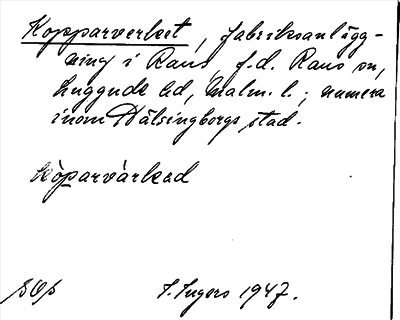 Kopparverket, fabriksanlägg-
ning i Raus f.d. Raus sn,
Luggude hd, Malm. l.; numera
inom Hälsingborgs stad.
kòparvárkəd
SOf
S. Ingers 1947.